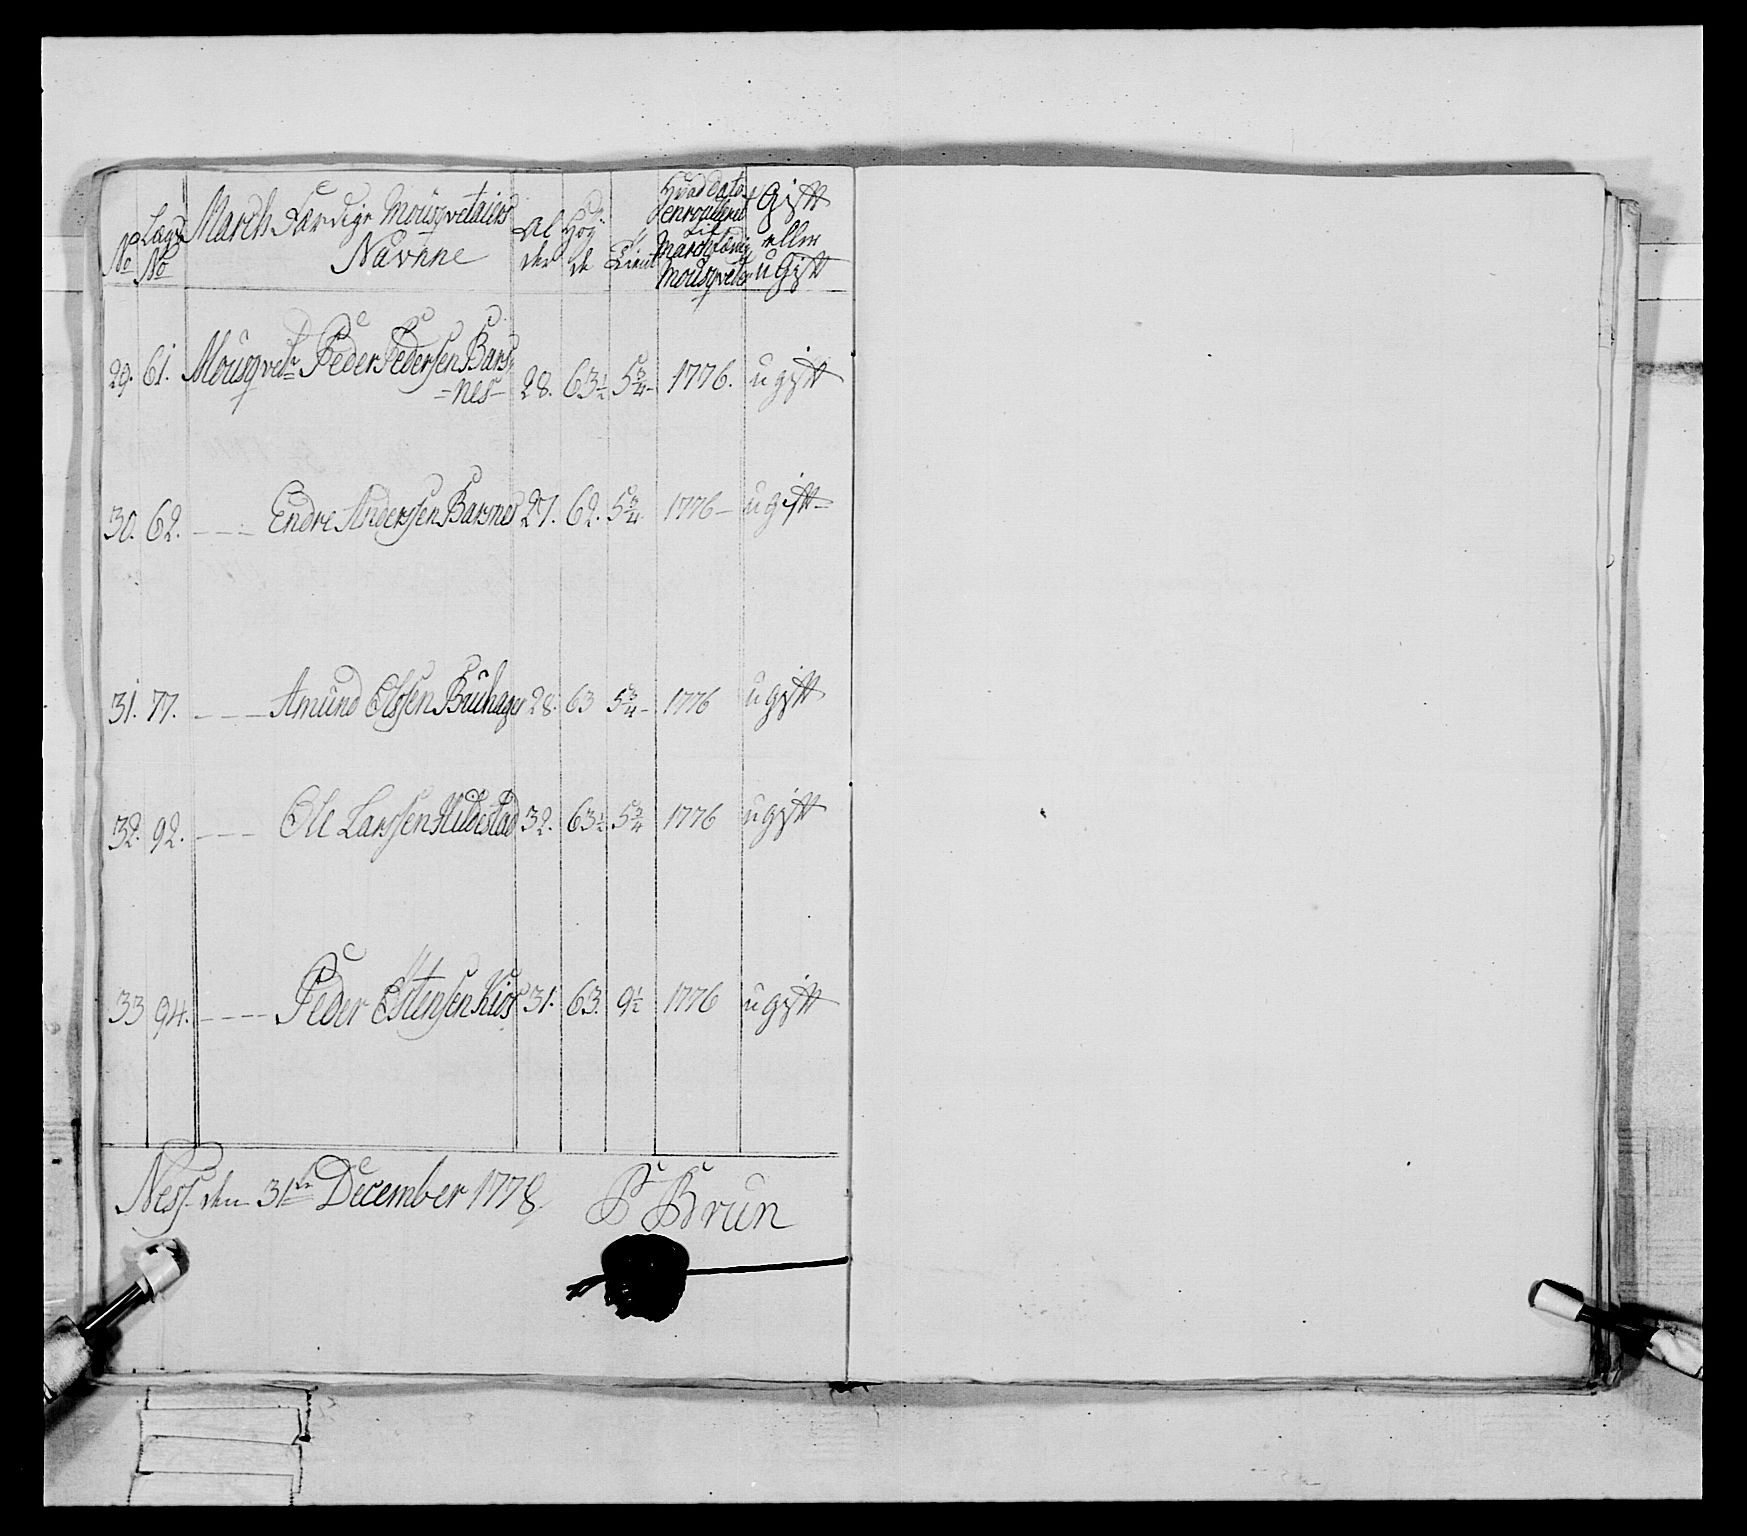 No Lægs No March Færdige Mousqvetaiers Navnne Al der Høy de Tient Hvad Dato enroulleret til March færdig Mousqveter Gift eller uGift
29. 61. Mousqvetr Peder Pedersen Bars- 28. 63½ 5¾ 1776. ugift
-nes-
30. 62. --- Endre Anderssen Barsnes 27. 62. 5¾ 1776- ugift-
31. 77. --- Amund Olssen 28. 63 5¾- 1776 ugift
32. 92. --- Ole Larssen Hildestad 32. 63½ 5¾ 1776 ugift
33 94. --- Peder Östensen Kiøs 31. 63. 9½ 1776 ugift
Ness den 31te December 1778 P Brun